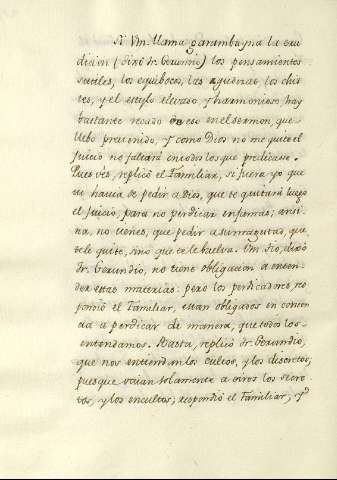 Si Vm. llama garambayna la eru
dicion (dixo fr. Gerundio) los pensamientos
sutiles, los equibocos, las agudezas, los chis
tes, y el estylo elevado y harmonioso, hay
bastante recado de eso en el sermon, que
llebo prevenido, y como Dios no me quite el
juicio no faltará en todos los que predicare.
Pues vés, replicó el Familiar, si fuera yo que
tu havia de pedir a Dios, que te quitará luego
el juicio, para no perdicar en forma; ansi
na, no tienes, que pedir a su mages tad, que
te le quite, sino que te le buelva. Vm. tio, dixo
fr. Gerundio, no tiene obligacion a enten
der estas materias: pero los perdicadores, res
pondió el Familiar, estan obligados en concen
cia a perdicar de manera, que todos los
entendamos. Basta, replicó fr. Gerundio,
que nos entiendan los cultos, y los discretos;
pues que vaian solamente a oiros los discre
tos, y los encultos; respondió el Familiar, y